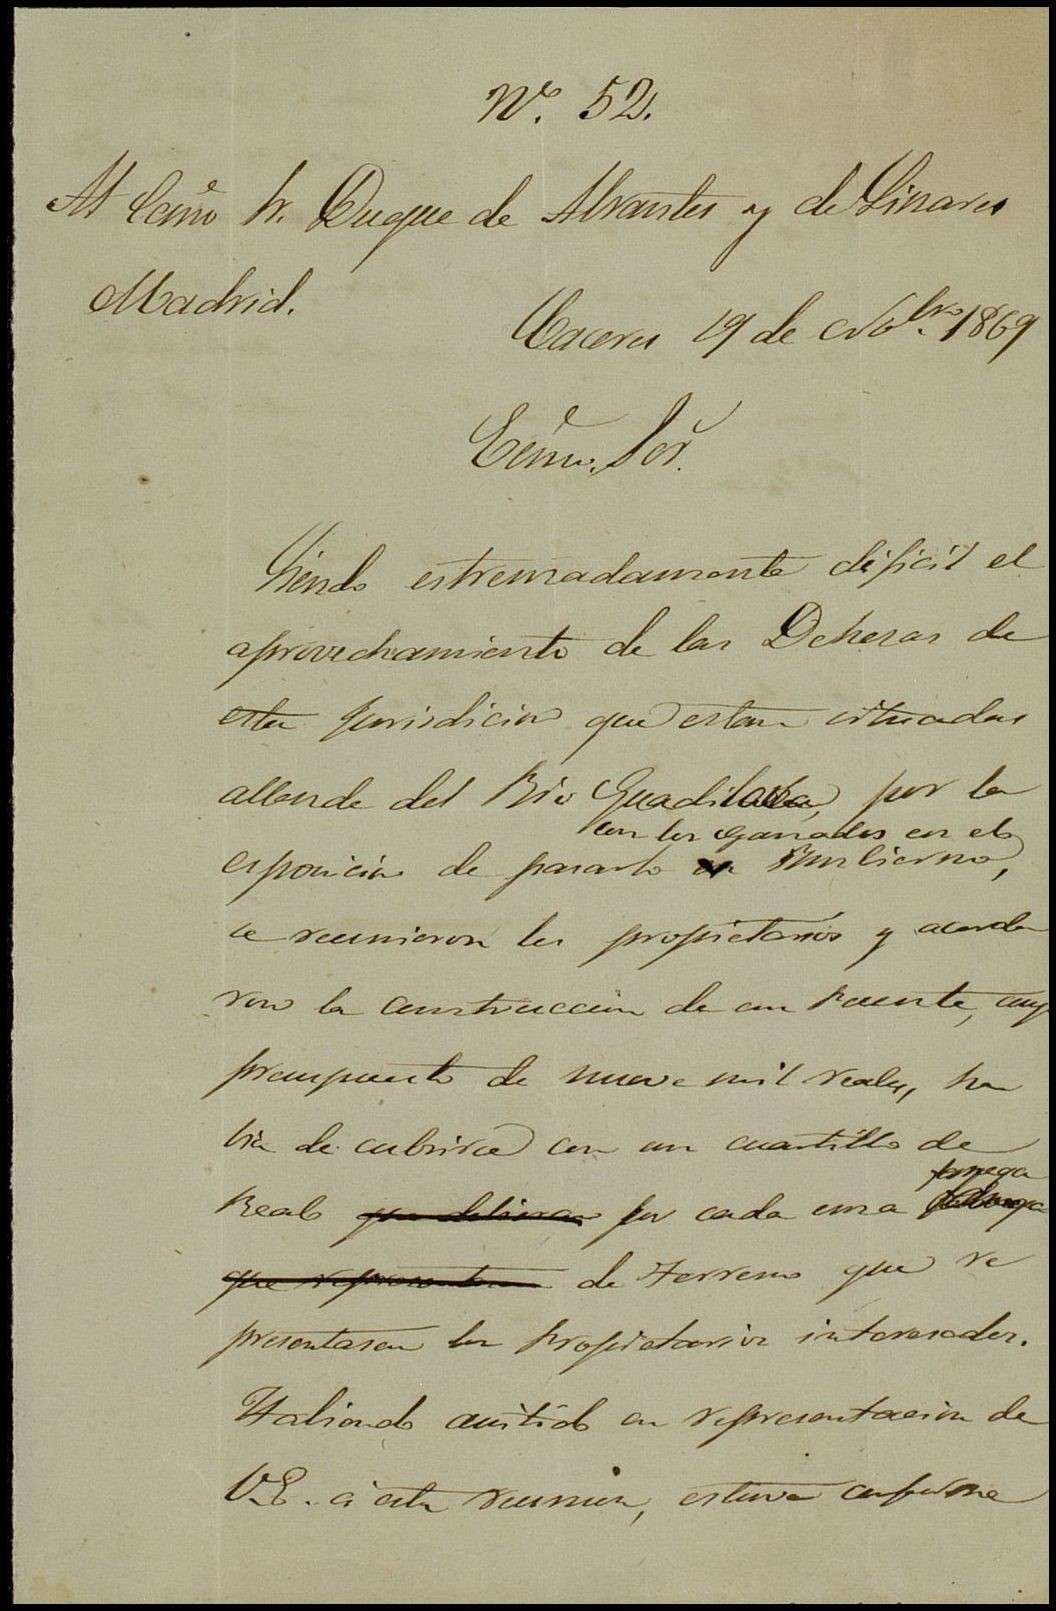 Nº. 52.
Al Ecmo Sr. Duque de Abrantes y de Linares
Madrid.
Caceres 19 de Nobre. 1869
Ecmo. Sor.
Siendo estremadamente dificil el
aprovechamiento de las Dehesas de
esta jurisdicion que estan situadas
allende del Rio Guadiloba, por la
con los ganados en el
esposicion de pasarlo en Imbierno,
se reunieron los propietarios y acorda
ron la construccion de un Puente, cuyo
presupuesto de nueve mil reales, ha
bia de cubrirse con un cuartillo de
fanega
Real que debieran por cada una
que representan de terreno que re
presentasen los propietarios interesados.
Habiendo asistido en representacion de
V.E. á esta reunion, estuve conforme